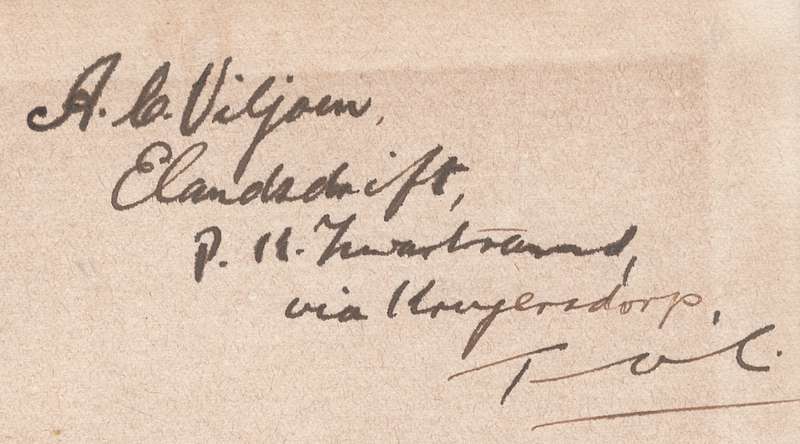 A. C. Viljoen,
Elandsdrift,
P. K. Zwartrand,
via Krugersdorp,
TvL.